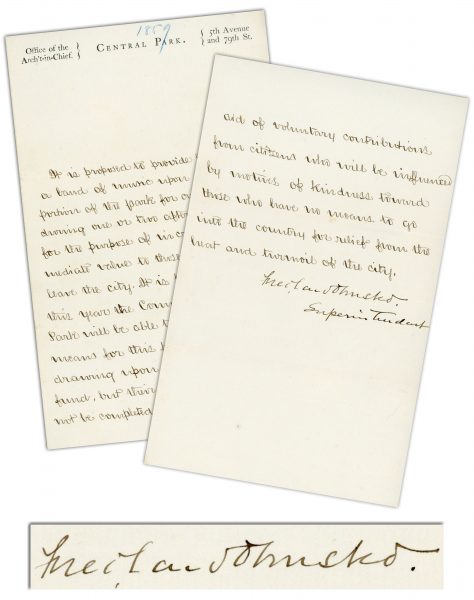 1859
Office of the Arch't-in-Chief. CENTRAL PARK. 5th Avenue and 79th St.
It is proposed to provide
a band of music upon
portion of the Park for
during one or two
for the purpose of
mediate value to those
leave the city. It is
this year the Com
Park will be able t
means for this
drawing upon
fund, but their
not be completed
aid of voluntary contributions
from citizens who will be influenced
by motives of kindness toward
those who have no means to go
into the country for relief from the
heat and turmoil of the city.
Fred. Law Olmsted.
Superintendent
Fred. Law Olmsted.